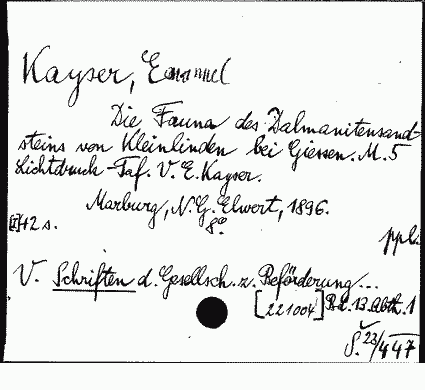 Kayser, Emanuel
Die Fauna des Dalmanitensand-
steins von Kleinlinden bei Giessen. M. 5
Lichtdruck-Taf. V. E. Kayser.
Marburg, N. G. Elwert, 1896.
8º.
42 s.
ppl.
V. Schriften d. Gesellsch. z. Beförderung...
[221004] Bd. 13. Abth. 1
Š. 23/447